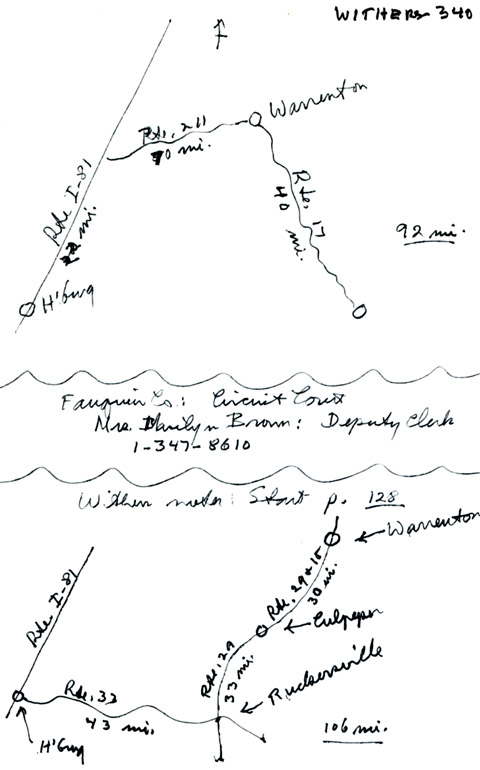 WITHERS 340
Warrenton
Rte. 211
70 mi.
Rte I-81
22 mi.
Rte. 17
40 mi.
92 mi.
H'burg
Fauquier Co.: Circuit Court
Mrs. Marilyn Brown: Deputy Clerk
1-347-8610
Withers notes: Start p. 128
Warrenton
Rte. 29 & 15
30 mi.
Culpeper
Rte I-81
Rte. 29
33 mi.
Ruckersville
Rte. 33
43 mi.
H'burg
106 mi.